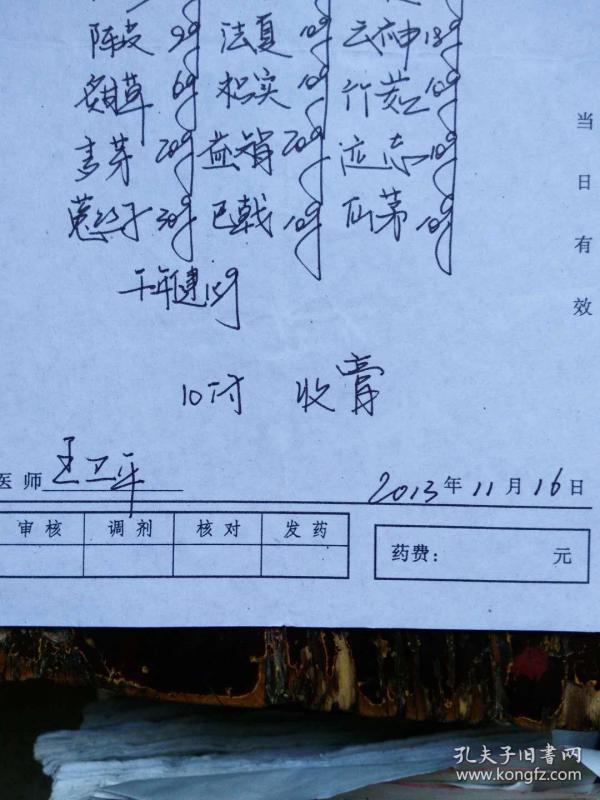 陈皮 9g 法夏 10g 云茯神 18g
炙甘草 6g 枳实 10g 竹茹 10g
麦芽 20g 益智 20g 远志 10g
菟丝子 30g 巴戟 10g 仙茅 10g
千年健 15g
10付 收膏
医师 王卫平 2013年11月16日
审核 调剂 核对 发药
药费: 元
当日有效
孔夫子旧书网
www.kongfz.com